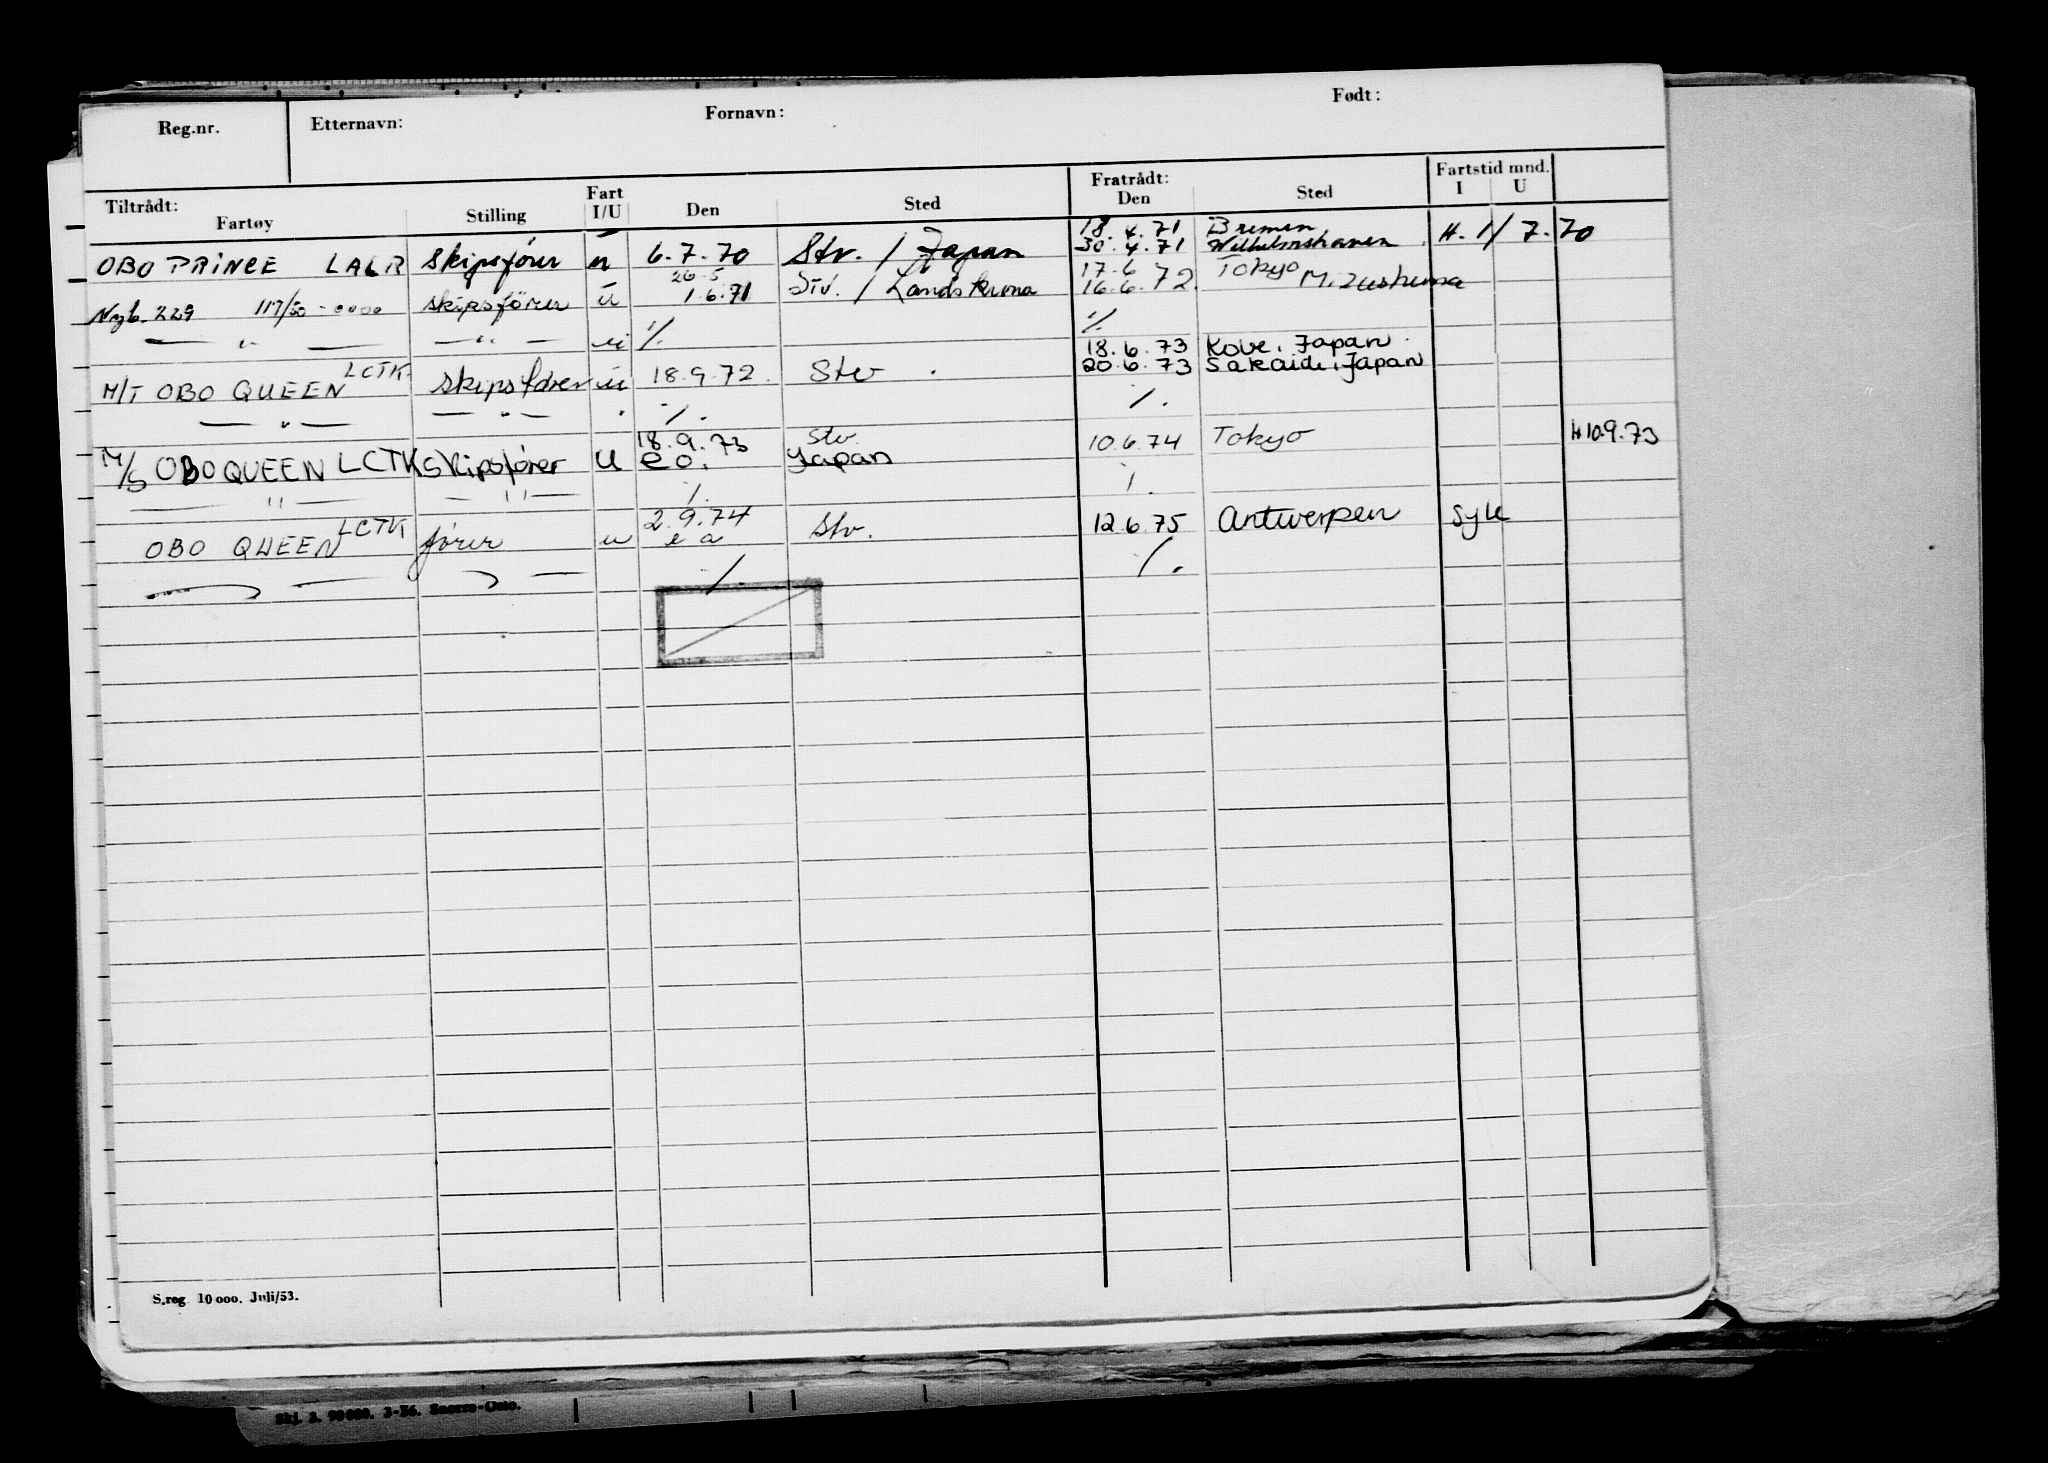 Reg.nr. Etternavn: Fornavn: Født:
Tiltrådt: Fratrådt: Fartstid mnd.
Fartøy Stilling Fart I/U Den Sted Den Sted I U
18.4.71 Bremen
OBO PRINCE LALR skipsfører u 6.7.70 Stv. / Japan 30.4.71 Wilhelmshaven H. 1/7.70
26.5 17.6 72 Tokyo
Nyb. 229 117/50 - 0000 skipsfører u 1.6.71 Stv. / Landskrona 16.6.72. Mizushima
— " — — " — u ./. ./.
18.6.73 Kobe, Japan
M/T OBO QUEEN LCTK. skipsfører u 18.9.72. Stv 20.6.73 Sakaide, Japan
— " — — " — " ./. ./.
18.9.73 Stv.
M/S OBO QUEEN LCTK skipsfører u e.o. Japan 10.6.74 Tokyo H 10.9.73
— " — — " — ./. ./.
2.9.74
OBO QUEEN LCTK fører u e a Stv. 12.6.75 Antwerpen syk
./. ./.
S.reg 10 000. Juli/53.
Skl. 3. 90 000. 2-56. Snorre-Oslo.